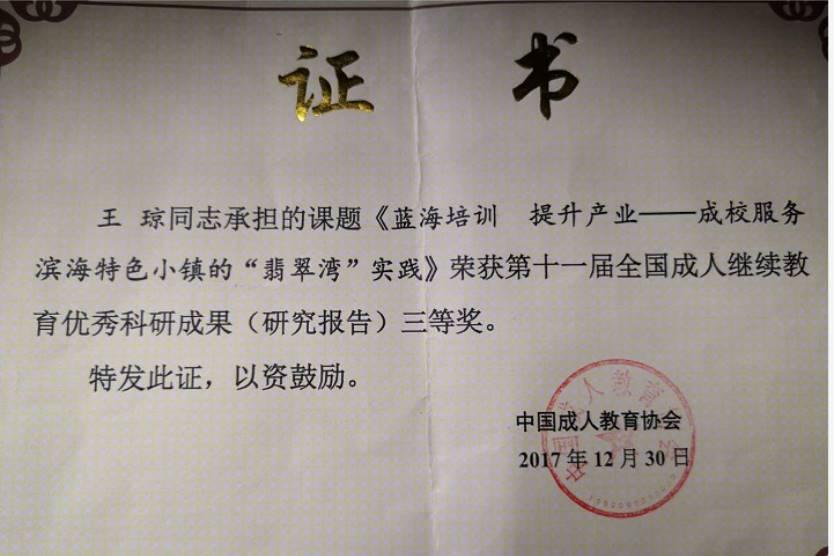 证 书
王 琼同志承担的课题《蓝海培训 提升产业——成校服务
滨海特色小镇的“翡翠湾”实践》荣获第十一届全国成人继续教
育优秀科研成果（研究报告）三等奖。
特发此证，以资鼓励。
中国成人教育协会
2017 年 12 月 30 日
中国成人教育协会